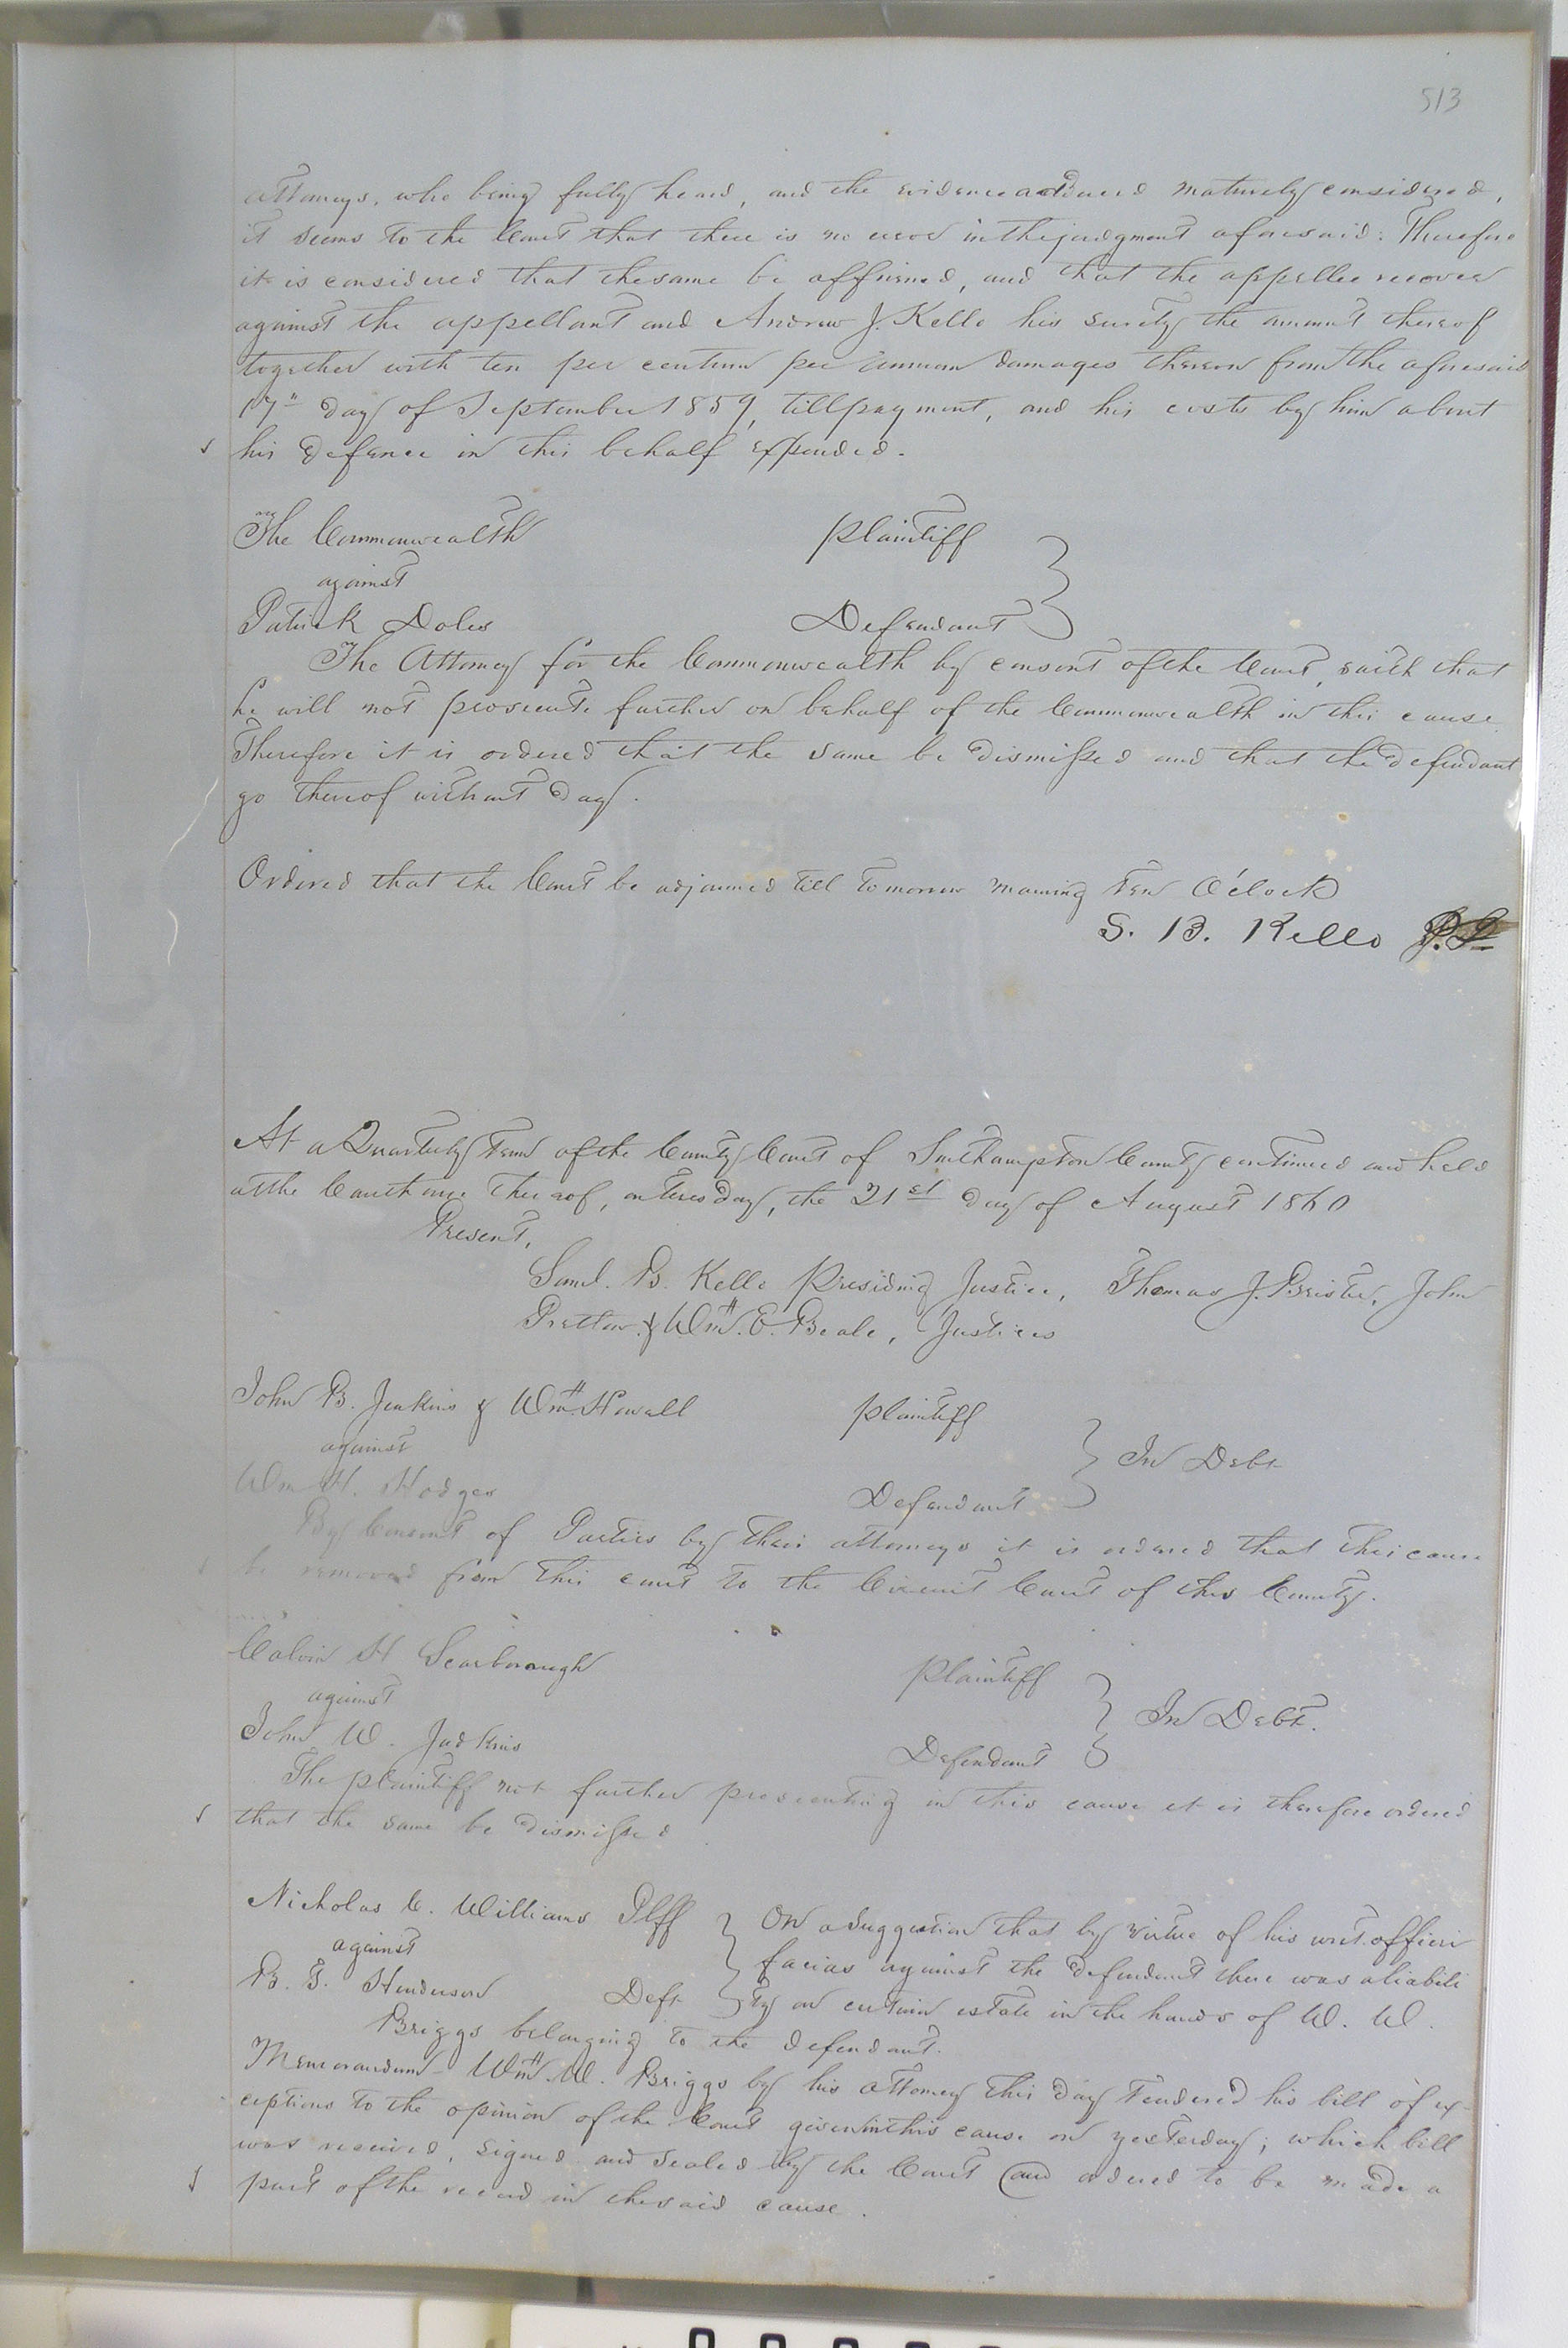 513
attorneys, who being fully heard, and the evidence adduced maturely considered,
it seems to the Court that there is no error in the judgment aforesaid: Therefore
it is considered that the same be affirmed, and that the appellee recover
against the appellant and Andrew J. Kello his surety the amount thereof
together with ten per centum per annum damages thereon from the aforesaid
17" day of September 1859, till payment, and his costs by him about
his defence in this behalf expended.
The Commonwealth Plaintiff
against
Patrick Doles Defendant
The Attorney for the Commonwealth by consent of the Court, saith that
he will not prosecute further on behalf of the Commonwealth in this cause
Therefore it is ordered that the same be dismissed and that the defendant
go thereof without day.
Ordered that the Court be adjourned till tomorrow morning ten O'clock
S. B. Kello P.J.
At a Quarterly term of the County Court of Southampton County continued and held
at the Courthouse thereof, on tuesday, the 21st day of August 1860
Present,
Saml. B. Kello Presiding Justice, Thomas J. Brister, John
Pretlow & Wm. E. Beale, Justices
John B. Jenkins & Wm. Howell Plaintiff
against
Wm H. Hodges Defendant } In Debt
By Consent of Parties by their attorneys it is ordered that this cause
be removed from this court to the Circuit Court of this County.
Calvin H Scarborough Plaintiff
against } In Debt.
John W. Judkins Defendant
The plaintiff not further prosecuting in this cause it is therefore ordered
that the same be dismissed
Nicholas C. Williams Plff } On a Suggestion that by virtue of his writ of fieri
against facias against the defendant there was a liabili
B. T. Henderson Deft ty on certain estate in the hands of W. W.
Briggs belonging to the defendant.
Memorandum Wm. W. Briggs by his attorney this day tendered his bill of ex-
ceptions to the opinion of the Court given in this cause on yesterday; which bill
was received, signed and sealed by the Court and ordered to be made a
part of the record in the said cause.